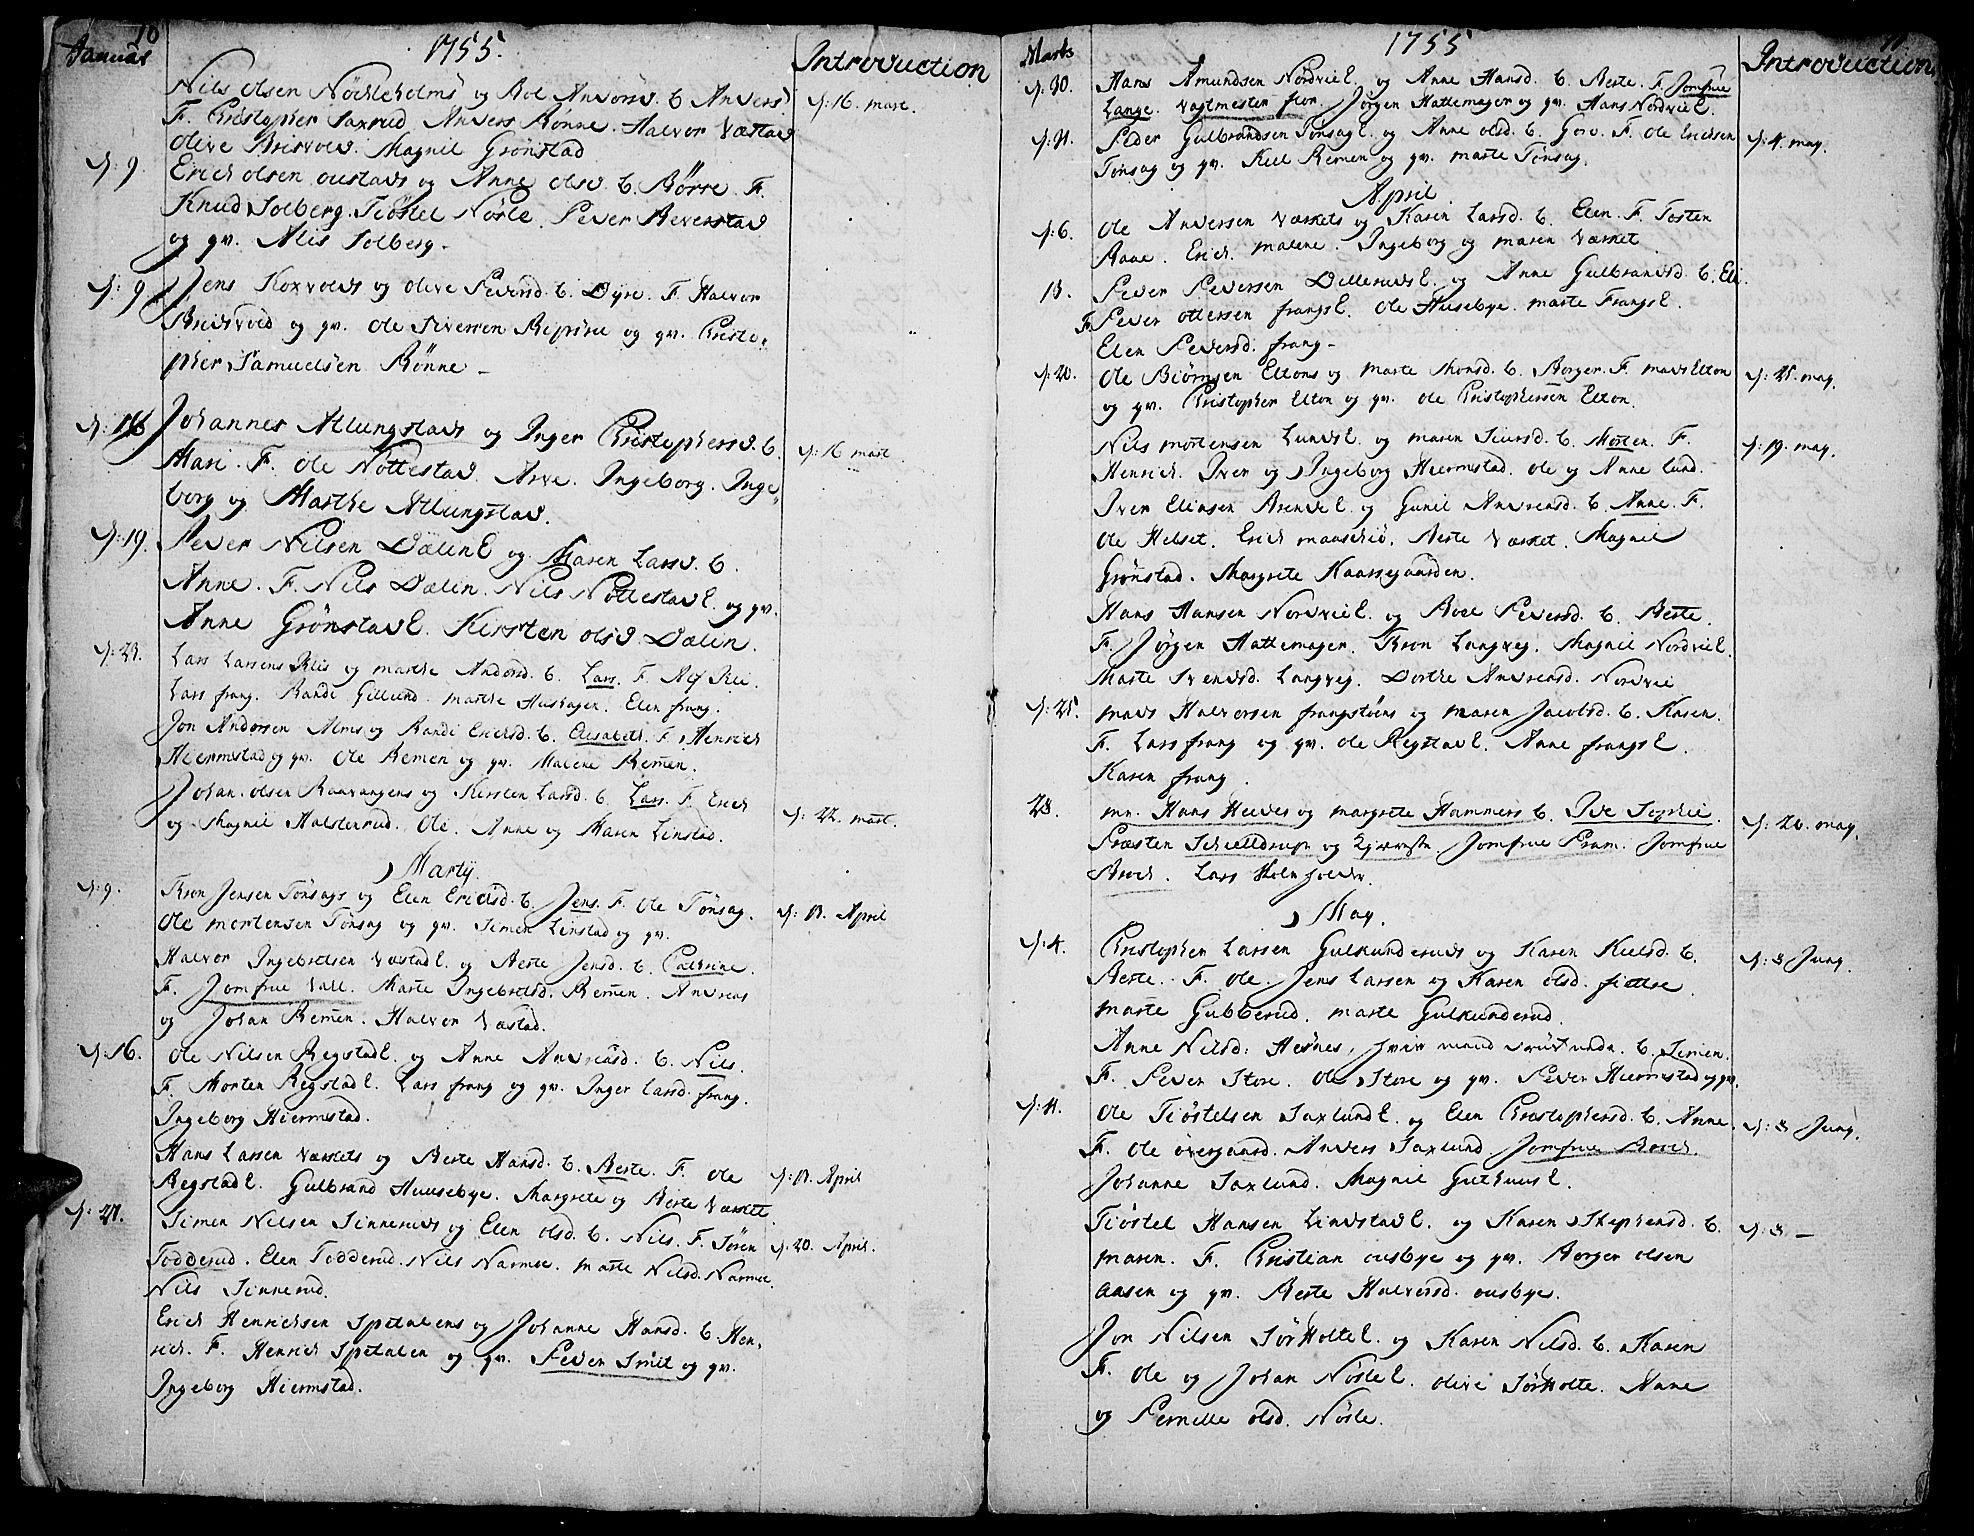 10
Januar 1755. Introduction
Nils Olsen Nöckleholms og Boel Andersd. b. Anders
F. Christopher Saxrud Anders Rönne. Halvor Væstad d: 16. mart.
Olive Brisvold. Magnil Grönstad
d: 9. Erich Olsen Oustads og Anne Olsd. b. Börre. F.
Knud Solberg. Tiöstel Nösle. Peder Beverstad
og qv. Alis Solberg.
d: 9 Jens Koxvolds og Olive Pedersd. b. Dyre. F. Halvor
Brisvold og qv. Ole Siversen og qv. Christo-
pher Samuelsen Rönne
Johannes Atlungstads og Inger Christophersd. b. d: 16 mart.
Mari. F. Ole Nöttestad. Arve. Ingeborg. Inge-
borg og Marthe Atlungstad.
d: 19. Peder Nilsen Dælin E og Maren Larsd. b.
Anne. F. Nils Dælin. Nils Nöttestad E. og qv.
Anne Grönstad E. Kirsten Olsd. Dælin.
d: 23. Lars Larsens Klis og marthe Andersd. b. Lars. F. Alf Klei.
Lars frang. Randi Gillund. marthe Hushagen. Elen frang.
Jon Andersen Alms og Randi Erichsd. b. Elisabeth. F. Henrich
Hiermstad og qv. Ole Remen og qv. Malene Remen.
Johan Olsen Raavangens og Kirsten Larsd. b. Lars. F. Erich d: 22. mart.
og Magnil Halsterud. Ole. Anne og Maren Linstad.
Martij.
d: 9. Tron Jensen Tönsags og Elen Erichsd. b. Jens. F. Ole Tönsag. d: 13. April
Ole Mortensen Tönsag og qv. Simen Linstad og qv.
Halvor Ingebretsen Væstad E. og Berte Jensd. b. Cathrine.
F. Jomfrue Wall. Marte Ingebretsd. Remen. Andreas
og Johan Remen. Halvor Væstad.
d: 16. Ole Nilsen Regstad E. og Anne Andreasd. b. Nils.
F. Morten Regstad E. Lars frang og qv. Inger Larsd. frang.
Ingeborg Hiermstad.
Hans Larsen Værkets og Berte Hansd. b. Berte. F. Ole d: 13. April
Regstad E. Gulbrand Huusebye. Margrete og Berte Værket
Simen Nilsen Sinneruds og Elen Olsd. b. Nils. F. Sören d: 20. April.
Todderud. Elen Todderud. Nils Narmoe. marte Nilsd. Narmoe
Nils Sinnerud.
Erich Henrichsen Spetalens og Johanne Hansd. b. Hen-
rich. F. Henrich Spetalen og qv. Peder Smit og qv.
Ingeborg Hiermstad.
Marts 1755 11. Introduction
d: 30. Hans Amundsen Nordvie E. og Anne Hansd. b. Berte. F. Jomfrue
Lange. Vagtmester flor. Jörgen Hattemager og qv. Hans Nordvie E.
Peder Gulbrandsen Tönsag E. og Anne Olsd. b. Gerv. F. Ole Erichsen d: 4. may.
Tönsag og qv. Kiel Remen og qv. marte Tönsag.
April
d: 6. Ole Andersen Værkets og Karen Larsd. b. Elen. F. Tosten
Aane. Erich. malene. Ingeborg og maren Værket.
13. Peder Pedersen Dellerud E. og Anne Gulbrandsd. b. Eli.
F. Peder Ottersen frangs E. Ole Husebye. marte Frangs E.
Elen Pedersd. frang
d: 20. Ole Biörnsen Eltons og marte Monsd. b. Borger. F. mads Elton d: 25. may.
og qv. Christopher Elton og qv. Ole Christophersen Elton.
Nils mortensen Lunds E. og maren Siversd. b. Morten. F. d: 19. may.
Henrich. Iver og Ingeborg Hiermstad. Ole og Anne Lund.
Iver Eliasen Arend E. og Gunil Andreasd. b. Anne. F.
Ole Helset. Erich maaschid. Berte Værket. Magnil
Grönstad. Margrete Kaarsegaarden.
Hans Hansen Nordvie E. og Boel Pedersd. b. Berte.
F. Jörgen Hattemager. Tron Langveg. Magnil Nordvie E.
Marte Svensd. Langveg. Dorthe Andreasd. Nordvie
d: 25. mads Halvorsen frangstöens og maren Jacobsd. b. Karen.
F. Lars frang og qv. Ole Regstad E. Anne frangs E.
Karen frang.
28. mr. Hans Heedes og margrete Hammers b. Ide Sophie. d: 26. may.
Præsten Schielldrup og . Jomfrue Pram. Jomfrue
Broch. Lars
May.
d: 4. Christopher Larsen Gulkunderuds og Karen Kielsd. b. d: 8 Juny.
Berte. F. Ole. Jens Larsen og Karen Olsd. fiettre.
marte Gubberud. marte Gulkunderud.
Anne Nilsd. Hesnes, b. Simen.
F. Peder Store. Ole Store og qv. Peder Hiermstad og qv.
d: 11. Ole Tiöstelsen Saxlund E. og Elen Christophersd. b. Anne. d: 8 Juny.
F. Ole Övergaard. Anders Saxlund Jomfrue Broch.
Johanne Saxlund. Magnil Guthuus E.
Tiöstel Hansen Lindstad E. og Karen Stephensd. b. d: 8 –
maren. F. Christian Ousbye og qv. Borger Olsen
Aasen og qv. Berte Halvorsd. Ousbye.
Jon Nilsen Sörholte E. og Karen Nilsd. b. Karen
F. Ole og Johan Nösle E. Olive Sörholte. Anne
og Pernille Olsd. Nösle.